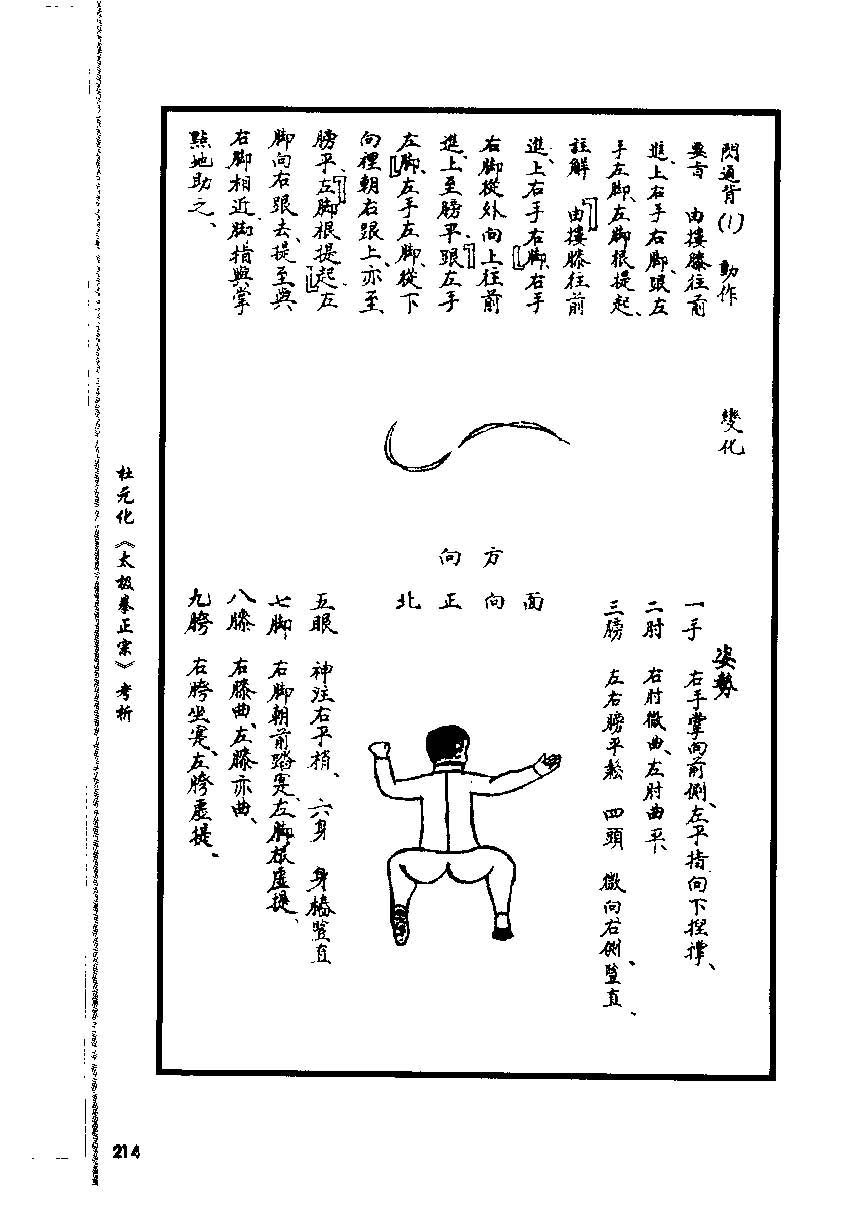 閃通背(1) 動作
要言 由摟膝往前
進、上右手右脚、跟左
手左脚、左脚根提起、
註解 「由摟膝往前
進、上右手右脚」、右手
右脚從外向上往前
進、上至膀平、「跟左手
左脚」、左手左脚、從下
向裡朝右跟上、亦至
膀平、「左脚根提起」、左
脚向右跟去、提至與
右脚相近、脚指與掌
點地助之、
變化
方向
面向正北
姿勢
一手 右手掌向前側、左手指向下捏撑、
二肘 右肘微曲、左肘曲平、
三膀 左右膀平鬆 四頭 微向右側豎直、
五眼 神注右手梢、六身 身樁豎直
七脚 右脚朝前踏寔、左脚根虛提、
八膝 右膝曲、左膝亦曲、
九胯 右胯坐寔、左胯虛提、
杜元化《太极拳正宗》考析
214